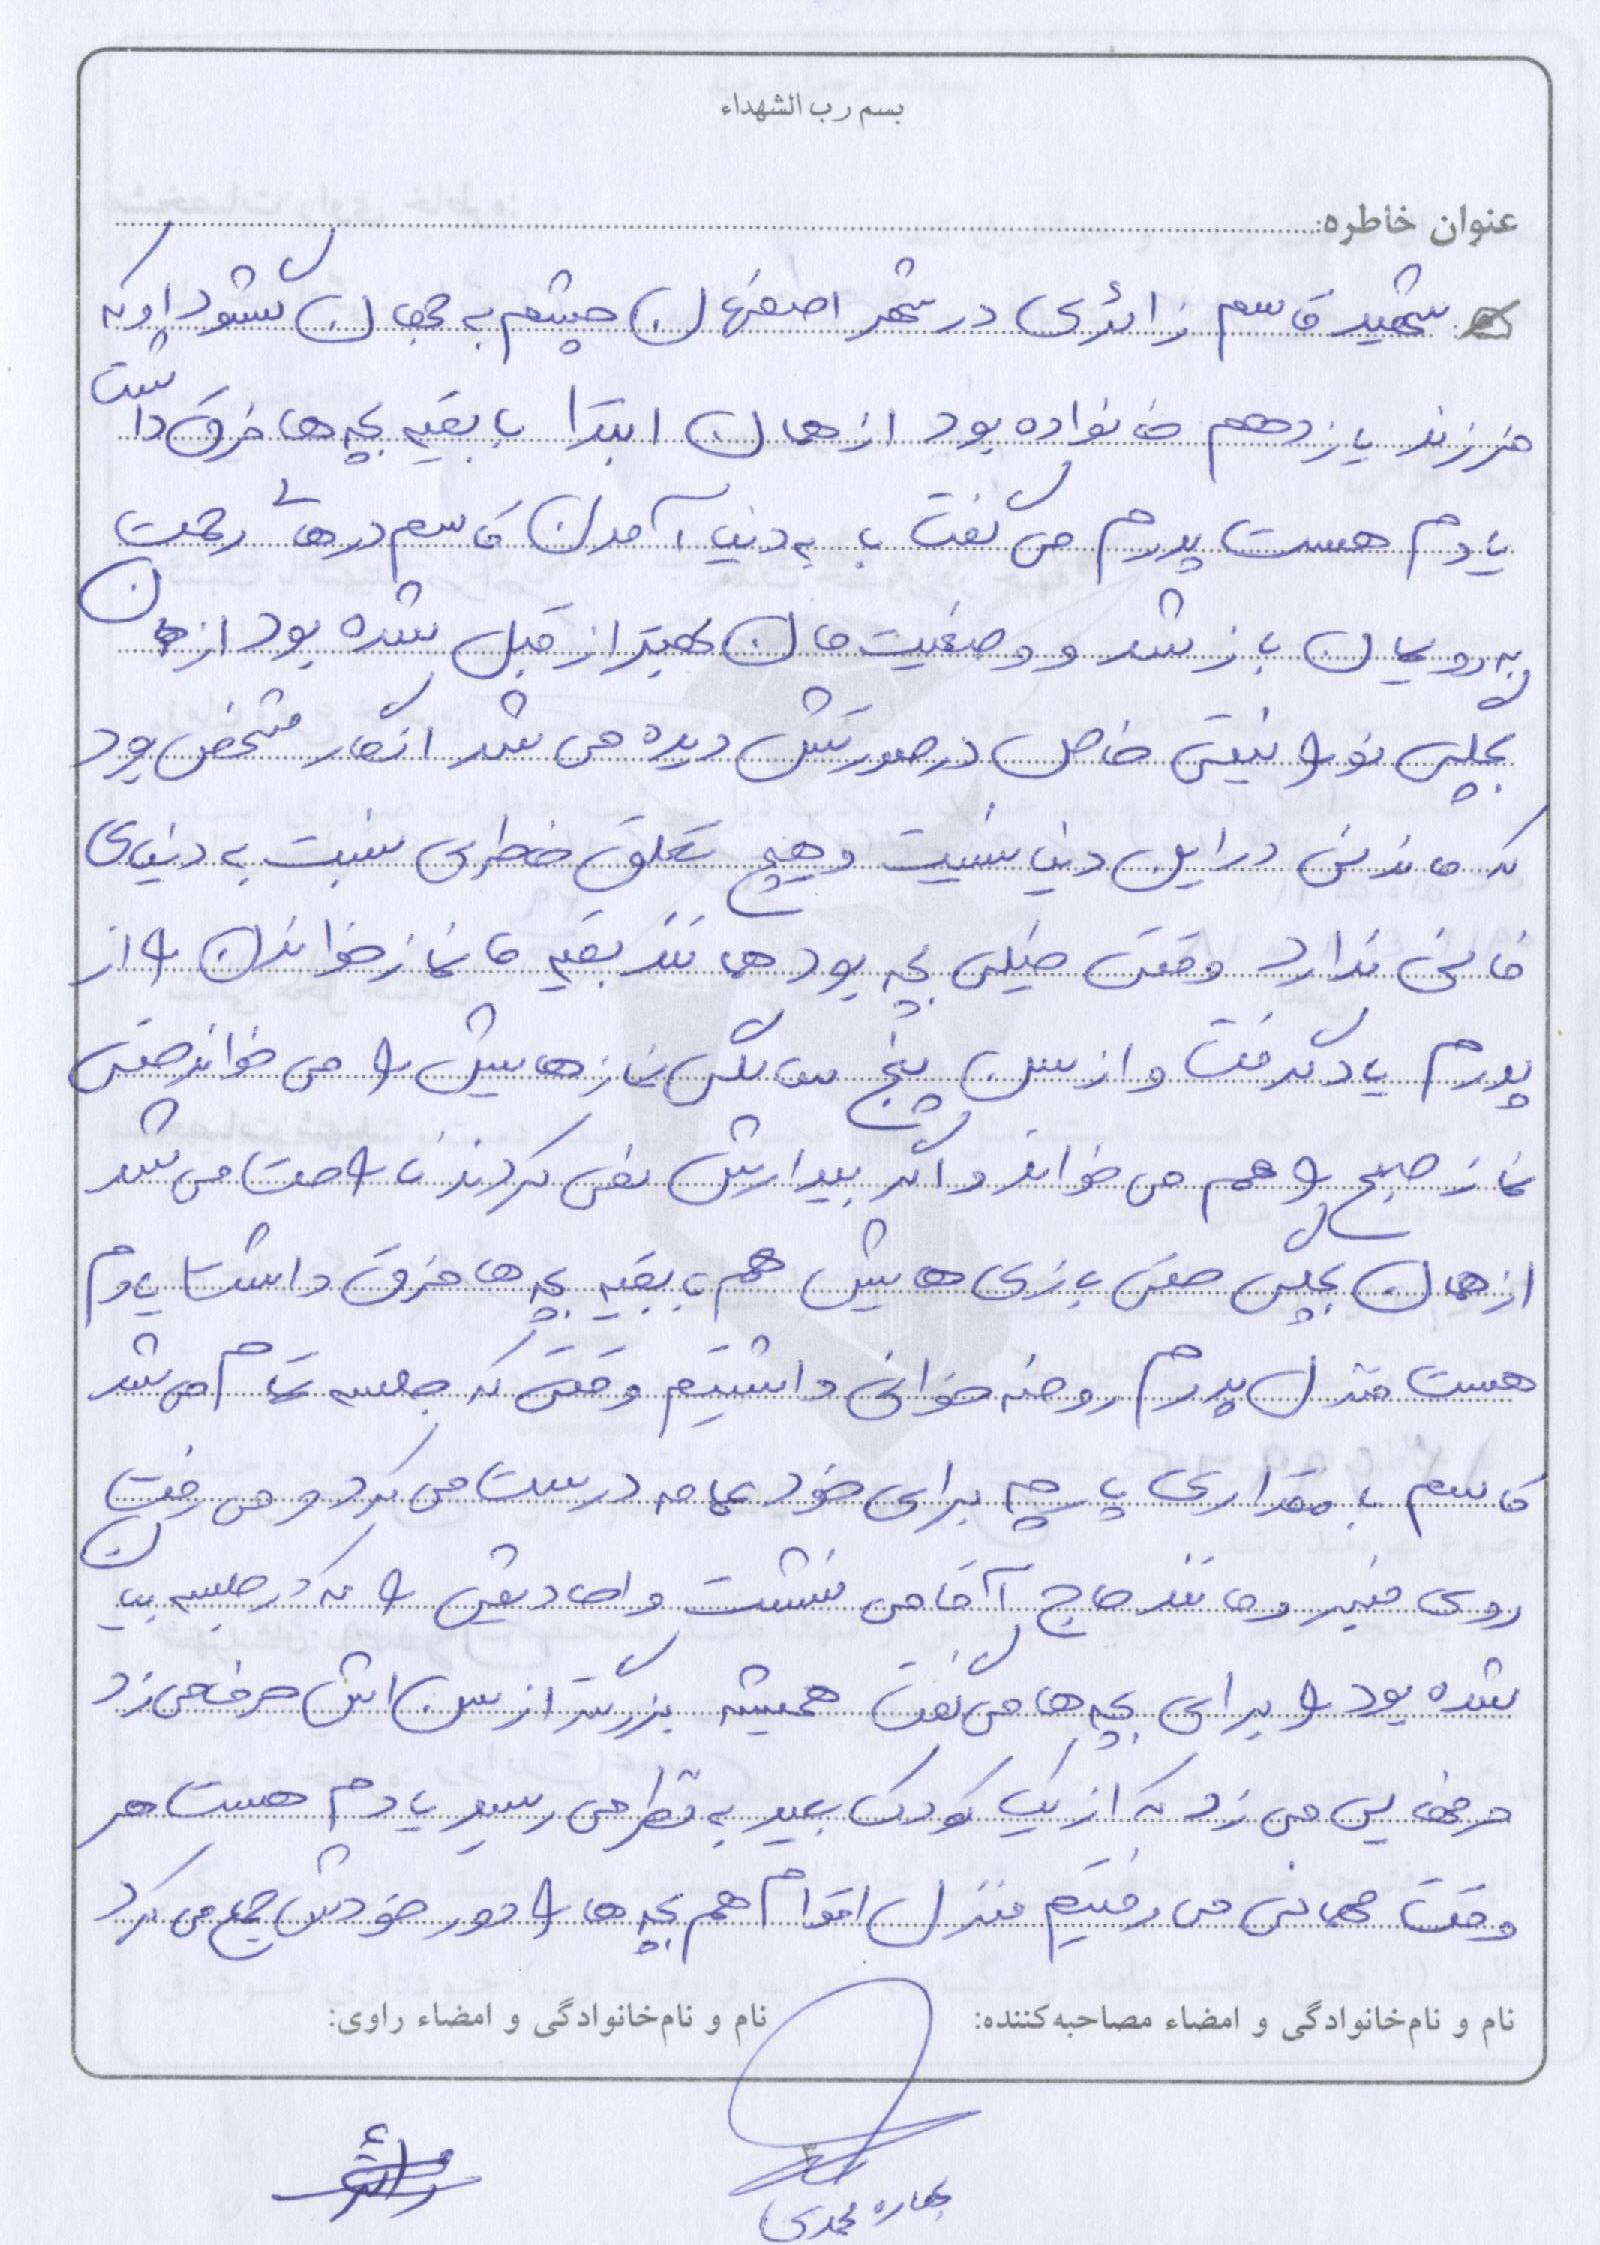 بسم رب الشهداء
عنوان خاطره:
شهید قاسم زائری در شهر اصفهان چشم به جهان گشود او که
فرزند یازدهم خانواده بود از همان ابتدا با بقیه بچه ها فرق داشت
یادم هست پدرم می گفت با به دنیا آمدن قاسم درهای رحمت
به رویمان باز شد و وضعیت مان بهتر از قبل شده بود از همان
بچگی نورانیتی خاص در صورتش دیده می شد انگار مشخص بود
که ماندنی در این دنیا نیست و هیچ تعلق خاطری نسبت به دنیای
فانی ندارد وقتی خیلی بچه بود همانند بقیه ما نماز خواندن را از
پدرم یاد گرفت و از سن پنج سالگی نمازهایش را می خواند حتی
نماز صبح را هم می خواند و اگر بیدارش نمی کردند ناراحت می شد
از همان بچگی حتی بازی هایش هم با بقیه بچه ها فرق داشت یادم
هست منزل پدرم روضه خوانی داشتیم وقتی که جلسه تمام می شد
قاسم با مقداری پارچه برای خود عمامه درست می کرد و می رفت
روی منبر و مانند حاج آقا می نشست و احادیثی را که در جلسه بیان
شده بود را برای بچه ها می گفت همیشه بزرگتر از سن اش حرف می زد
حرفهایی می زد که از یک کودک بعید به نظر می رسید یادم هست هر
وقت مهمانی می رفتیم منزل اقوام هم بچه ها را دور خودش جمع می کرد
نام و نام‌خانوادگی و امضاء مصاحبه‌کننده:
نام و نام‌خانوادگی و امضاء راوی:
بهاره محمدی